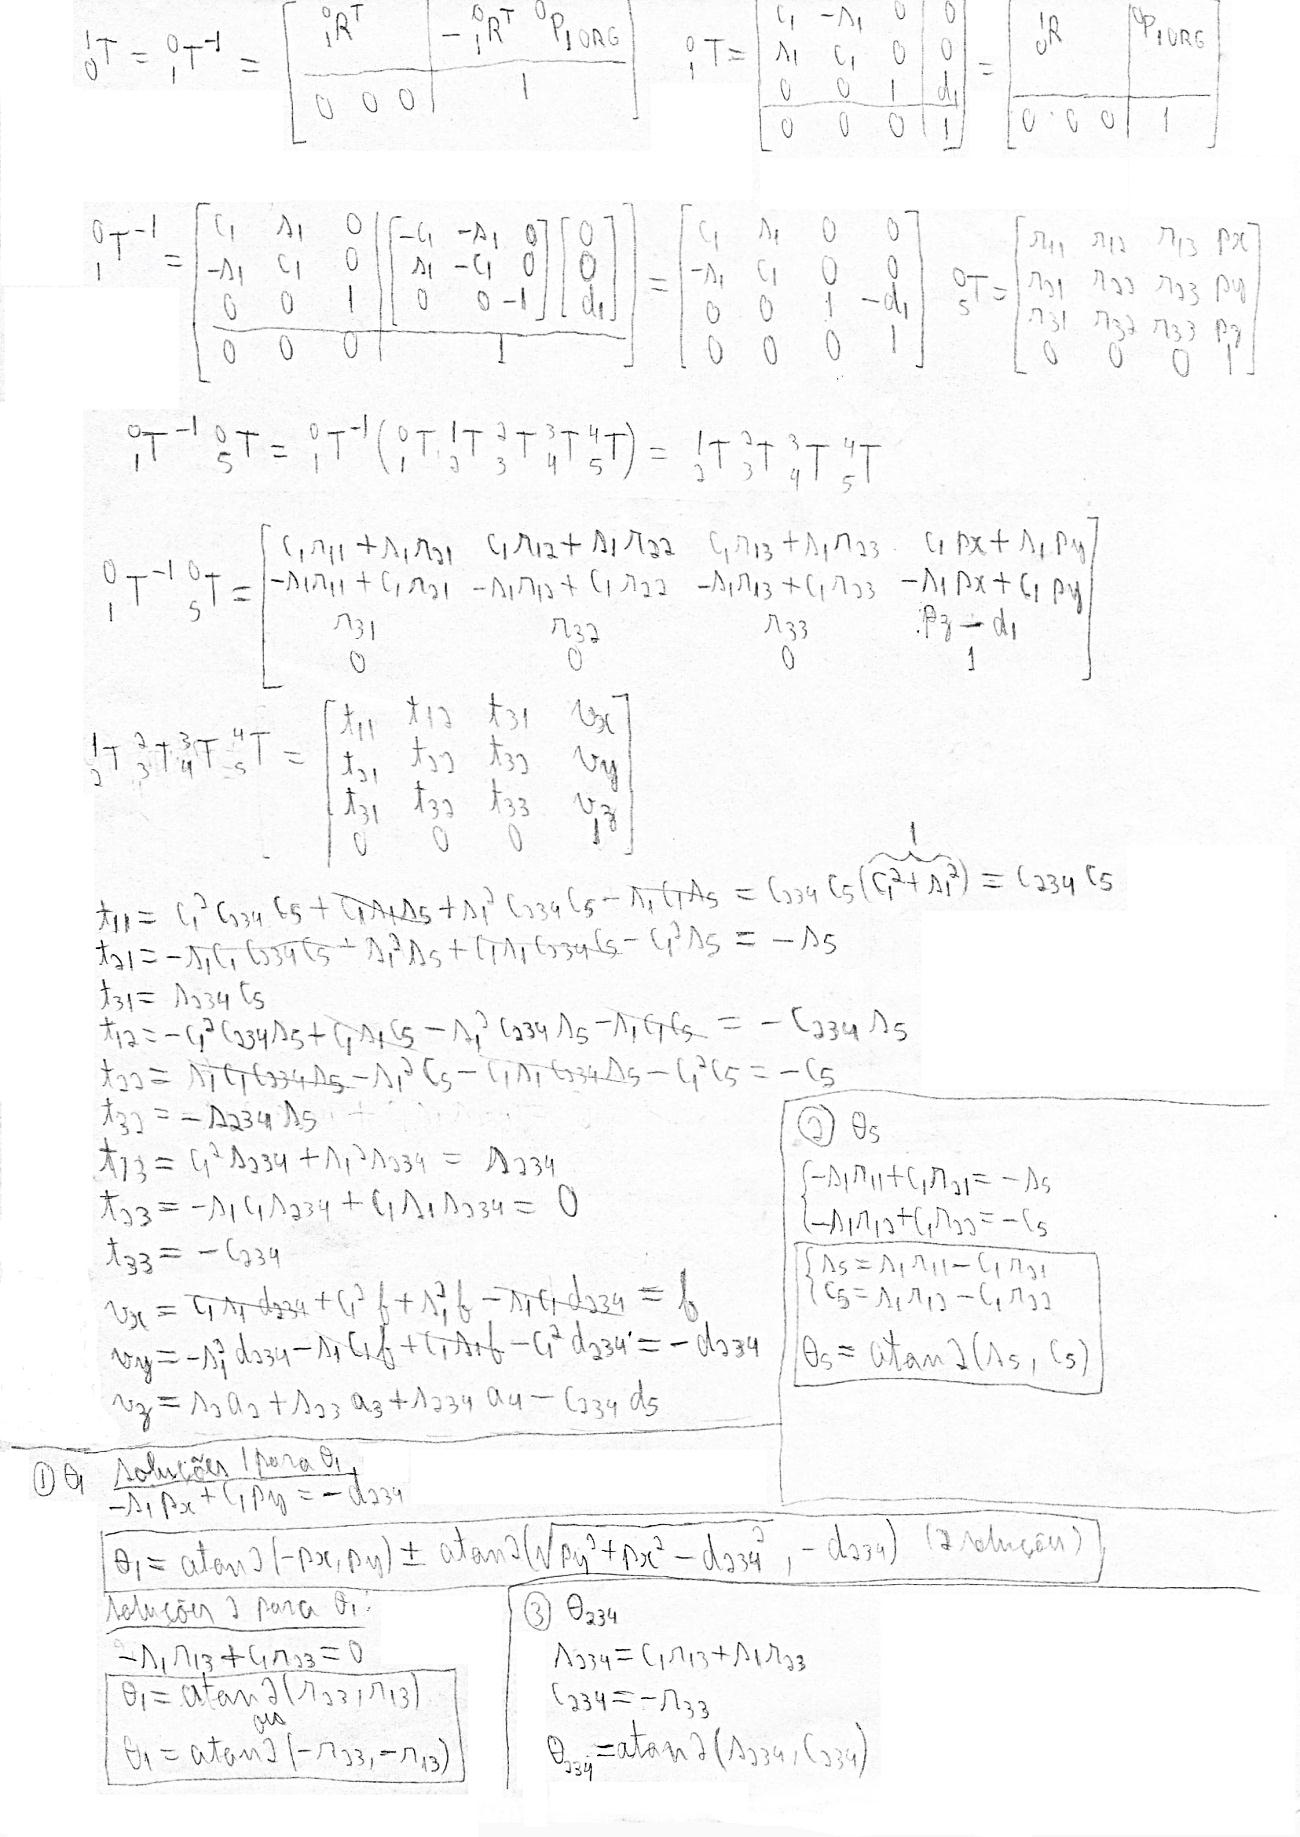 ¹₀T = ⁰₁T⁻¹ = [ ⁰₁Rᵀ | -⁰₁Rᵀ ⁰P₁ORG ; 0 0 0 | 1 ]   ⁰₁T = [ c₁ -s₁ 0 0 ; s₁ c₁ 0 0 ; 0 0 1 d₁ ; 0 0 0 1 ] = [ ¹₀R | ⁰P₁ORG ; 0 0 0 | 1 ]
⁰₁T⁻¹ = [ c₁ s₁ 0 ; -s₁ c₁ 0 ; 0 0 1 | [ -c₁ -s₁ 0 ; s₁ -c₁ 0 ; 0 0 -1 ] [ 0 ; 0 ; d₁ ] ; 0 0 0 | 1 ] = [ c₁ s₁ 0 0 ; -s₁ c₁ 0 0 ; 0 0 1 -d₁ ; 0 0 0 1 ]   ⁰₅T = [ r₁₁ r₁₂ r₁₃ px ; r₂₁ r₂₂ r₂₃ py ; r₃₁ r₃₂ r₃₃ pz ; 0 0 0 1 ]
⁰₁T⁻¹ ⁰₅T = ⁰₁T⁻¹ (⁰₁T ¹₂T ²₃T ³₄T ⁴₅T) = ¹₂T ²₃T ³₄T ⁴₅T
⁰₁T⁻¹ ⁰₅T = [ c₁r₁₁ + s₁r₂₁   c₁r₁₂ + s₁r₂₂   c₁r₁₃ + s₁r₂₃   c₁px + s₁py
-s₁r₁₁ + c₁r₂₁   -s₁r₁₂ + c₁r₂₂   -s₁r₁₃ + c₁r₂₃   -s₁px + c₁py
r₃₁   r₃₂   r₃₃   pz - d₁
0   0   0   1 ]
¹₂T ²₃T ³₄T ⁴₅T = [ t₁₁ t₁₂ t₃₁ vx
t₂₁ t₂₂ t₃₂ vy
t₃₁ t₃₂ t₃₃ vz
0 0 0 1 ]
1
t₁₁ = c₁²c₂₃₄c₅ + c₁s₁s₅ + s₁²c₂₃₄c₅ - s₁c₁s₅ = c₂₃₄c₅(c₁² + s₁²) = c₂₃₄c₅
t₂₁ = -s₁c₁c₂₃₄c₅ - s₁²s₅ + c₁s₁c₂₃₄c₅ - c₁²s₅ = -s₅
t₃₁ = s₂₃₄c₅
t₁₂ = -c₁²c₂₃₄s₅ + c₁s₁c₅ - s₁²c₂₃₄s₅ - s₁c₁c₅ = -c₂₃₄s₅
t₂₂ = s₁c₁c₂₃₄s₅ - s₁²c₅ - c₁s₁c₂₃₄s₅ - c₁²c₅ = -c₅
t₃₂ = -s₂₃₄s₅
t₁₃ = c₁²s₂₃₄ + s₁²s₂₃₄ = s₂₃₄
t₂₃ = -s₁c₁s₂₃₄ + c₁s₁s₂₃₄ = 0
t₃₃ = -c₂₃₄
vx = c₁s₁d₂₃₄ + c₁²f + s₁²f - s₁c₁d₂₃₄ = f
vy = -s₁²d₂₃₄ - s₁c₁f + c₁s₁f - c₁²d₂₃₄ = -d₂₃₄
vz = s₂a₂ + s₂₃a₃ + s₂₃₄a₄ - c₂₃₄d₅
② θ₅
{ -s₁r₁₁ + c₁r₂₁ = -s₅
{ -s₁r₁₂ + c₁r₂₂ = -c₅
{ s₅ = s₁r₁₁ - c₁r₂₁
{ c₅ = s₁r₁₂ - c₁r₂₂
θ₅ = atan2(s₅, c₅)
① θ₁ soluções 1 para θ₁
-s₁px + c₁py = -d₂₃₄
θ₁ = atan2(-px, py) ± atan2(√(py² + px² - d₂₃₄²), -d₂₃₄) (2 soluções)
soluções 2 para θ₁:
-s₁r₁₃ + c₁r₂₃ = 0
θ₁ = atan2(r₂₃, r₁₃)
ou
θ₁ = atan2(-r₂₃, -r₁₃)
③ θ₂₃₄
s₂₃₄ = c₁r₁₃ + s₁r₂₃
c₂₃₄ = -r₃₃
θ₂₃₄ = atan2(s₂₃₄, c₂₃₄)